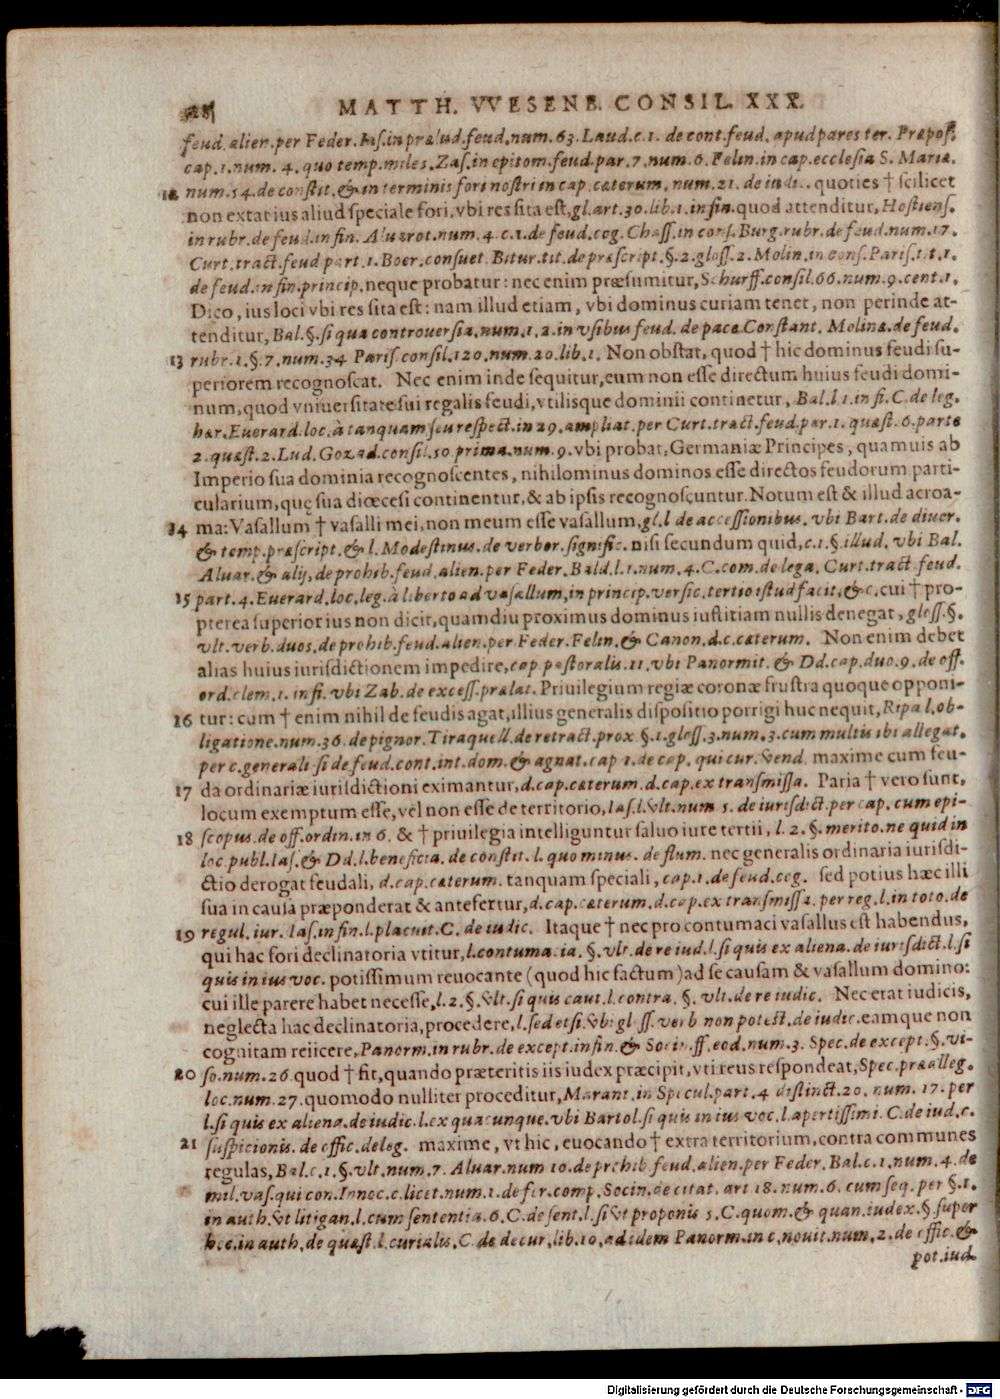 MATTH. VVESENB. CONSIL. XXX.
feud. alien. per Feder. Ias. in prælud. feud. num. 63. Laud. c. 1. de cont. feud. apud pares ter. Præpos.
cap. 1. num. 4. quo temp. miles. Zas. in epitom. feud. par. 7. num. 6. Felin. in cap. ecclesia S. Mariæ.
12 num. 54. de constit. & in terminis fori nostri in cap. cæterum. num. 21. de iudi.. quoties † scilicet
non extat ius aliud speciale fori, vbi res sita est, gl. art. 30. lib. 1. in fin. quod attenditur, Hostiens.
in rubr. de feud. in fin. Aluarot. num. 4. c. 1. de feud. cog. Chass. in cons. Burg. rubr. de feud. num. 17.
Curt. tract. feud part. 1. Boer. consuet. Bitur. tit. de præscript. §. 2. gloss. 2. Molin. in cons. Paris. t. 1. 1.
de feud. in fin. princip. neque probatur: nec enim præsumitur, Schurff. consil. 66. num. 9. cent. 1.
Dico, ius loci vbi res sita est: nam illud etiam, vbi dominus curiam tenet, non perinde at-
tenditur, Bal. §. si qua controuersia. num. 1. 2. in vsibus feud. de pace Constant. Molinæ. de feud.
13 rubr. 1. §. 7. num. 34 Paris. consil. 120. num. 20. lib. 1. Non obstat, quod † hic dominus feudi su-
periorem recognoscat. Nec enim inde sequitur, eum non esse directum huius feudi domi-
num, quod vniuersitate sui regalis feudi, vtilisque dominii continetur, Bal. l. 1. in fi. C. de leg.
hær. Euerard. loc. à tanquam seu respect. in 29. ampliat. per Curt. tract. feud. par. 1. quæst. 6. parte
2. quæst. 2. Lud. Gozad. consil. 50 prima. num. 9. vbi probat, Germaniæ Principes, quamuis ab
Imperio sua dominia recognoscentes, nihilominus dominos esse directos feudorum parti-
cularium, quę sua diœcesi continentur, & ab ipsis recognoscuntur. Notum est & illud acroa-
14 ma: Vasallum † vasalli mei, non meum esse vasallum, gl. l de accessionibus. vbi Bart. de diuer.
& temp. præscript. & l. Modestinus. de verbor. signific. nisi secundum quid, c. 1. §. illud. vbi Bal.
Aluar. & alij, de prohib. feud. alien. per Feder. Bald. l. 1. num. 4. C. com. de lega. Curt. tract. feud.
15 part. 4. Euerard. loc. leg. à liberto ad vasallum, in princip. versic. tertio istud facit, &c. cui † pro-
pterea superior ius non dicit, quamdiu proximus dominus iustitiam nullis denegat, gloss. §.
vlt. verb. duos. de prohib. feud. alien. per Feder. Felin. & Canon. d. c. cæterum. Non enim debet
alias huius iurisdictionem impedire, cap. pastoralis. 11. vbi Panormit. & Dd. cap. duo. 9. de off.
ord. clem. 1. in fi. vbi Zab. de excess. prælat. Priuilegium regiæ coronæ frustra quoque opponi-
16 tur: cum † enim nihil de feudis agat, illius generalis dispositio porrigi huc nequit, Ripa l. ob-
ligatione. num. 36. de pignor. Tiraquell. de retract. prox §. 1. gloss. 3. num. 3. cum multis ibi allegat.
per c. generali. si de feud. cont. int. dom. & agnat. cap 1. de cap. qui cur. vend. maxime cum feu-
17 da ordinariæ iurisdictioni eximantur, d. cap. cæterum. d. cap. ex transmissa. Paria † vero sunt,
locum exemptum esse, vel non esse de territorio, Ias. l. vlt. num 5. de iurisdict. per cap. cum epi-
18 scopus. de off. ordin. in 6. & † priuilegia intelliguntur saluo iure tertii, l. 2. §. merito. ne quid in
loc. publ. Ias. & Dd. l. beneficia. de constit. l. quo minus. de flum. nec generalis ordinaria iurisdi-
ctio derogat feudali, d. cap. cæterum. tanquam speciali, cap. 1. de feud. cog. sed potius hæc illi
sua in causa præponderat & antefertur, d. cap. cæterum. d. cap. ex transmissa. per reg. l. in toto. de
19 regul. iur. Ias. in fin. l. placuit. C. de iudic. Itaque † nec pro contumaci vasallus est habendus,
qui hac fori declinatoria vtitur, l. contumacia. §. vlt. de re iud. l. si quis ex aliena. de iurisdict. l. si
quis in ius voc. potissimum reuocante (quod hic factum) ad se causam & vasallum domino:
cui ille parere habet necesse, l. 2. §. vlt. si quis caut. l. contra. §. vlt. de re iudic. Nec erat iudicis,
neglecta hac declinatoria, procedere, l. sed etsi. vbi gloss. verb non potest. de iudic. eamque non
cognitam reiicere, Panorm. in rubr. de except. in fin. & Socin. ff. eod. num. 3. Spec. de except. §. vi-
20 so. num. 26. quod † fit, quando præteritis iis iudex præcipit, vti reus respondeat, Spec. præalleg.
loc. num. 27. quomodo nulliter proceditur, Marant. in Specul. part. 4 distinct. 20. num. 17. per
l. si quis ex aliena. de iudic. l. ex quacunque. vbi Bartol. si quis in ius voc. l. apertissimi. C. de iud. c.
21 suspicionis. de offic. deleg. maxime, vt hic, euocando † extra territorium, contra communes
regulas, Bal. c. 1. §. vlt. num. 7. Aluar. num 10. de prohib feud. alien. per Feder. Bal. c. 1. num. 4. de
mil. vas. qui con. Innoc. c. licet. num. 1. de for. comp. Socin. de citat. art 18. num. 6. cum seq. per §. 1.
in auth. vt litigan. l. cum sententia. 6. C. de sent. l. si vt proponis 5. C. quom. & quan. iudex. §. super
hoc. in auth. de quæst. l. curialis. C. de decur. lib. 10. ad idem Panorm. in c. nouit. num. 2. de offic. &
pot. iud.
Digitalisierung gefördert durch die Deutsche Forschungsgemeinschaft - DFG